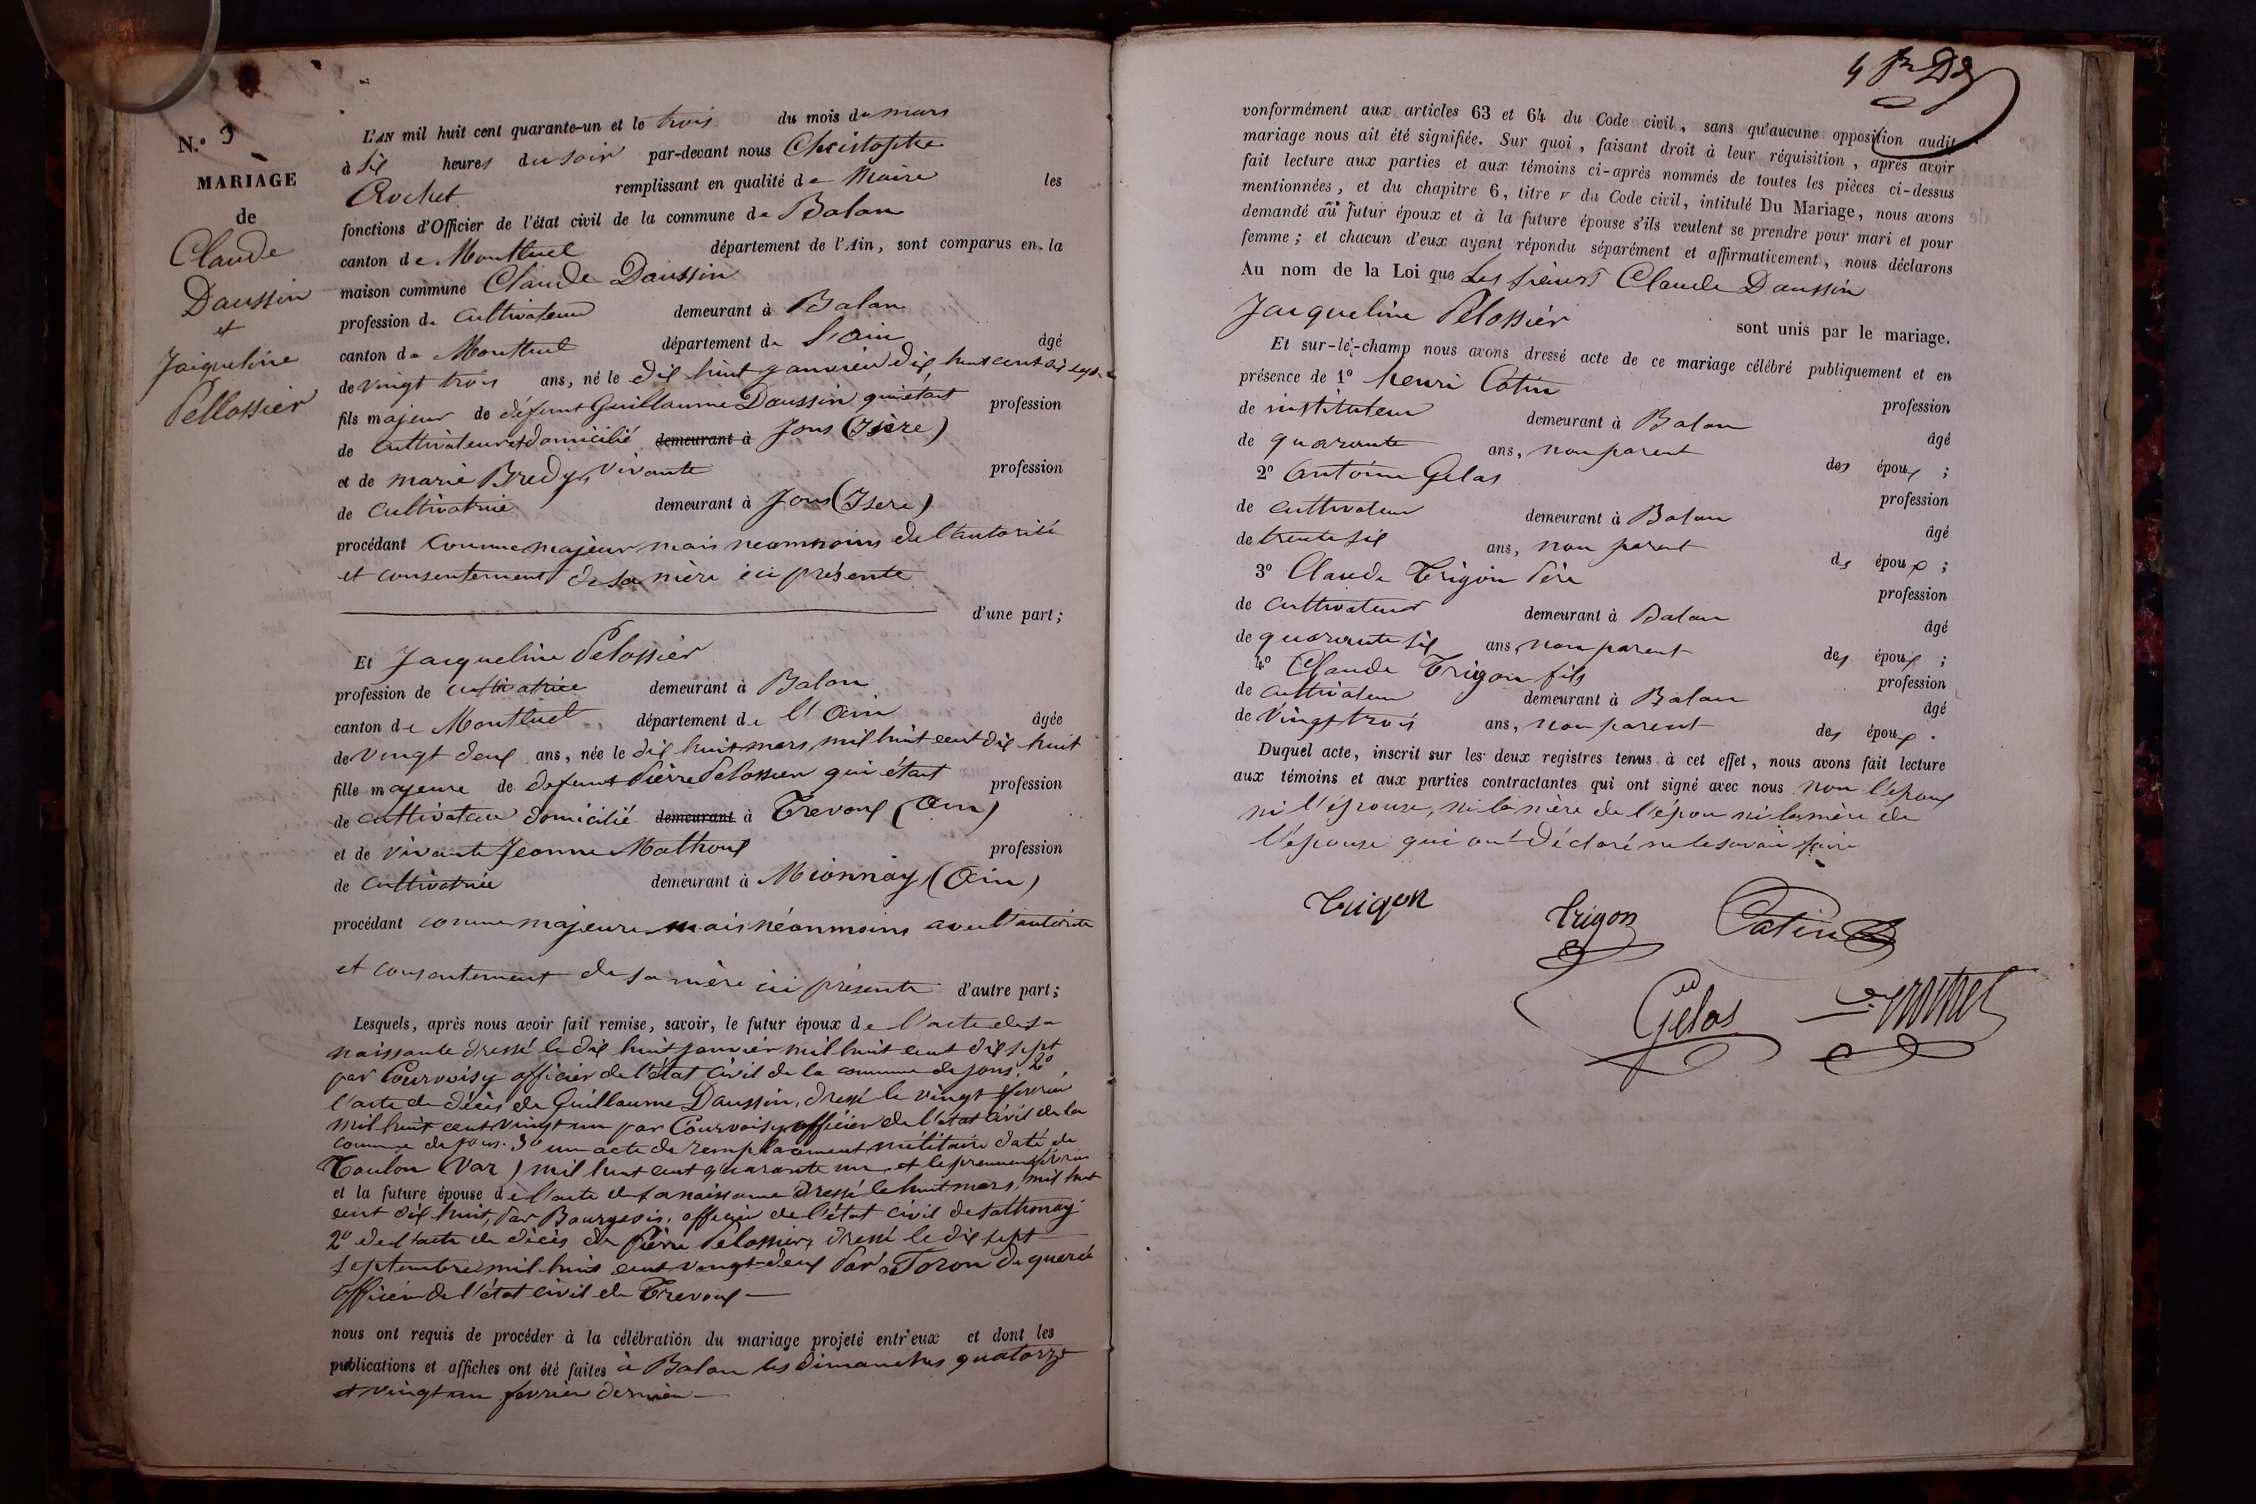 N.º 3
MARIAGE
de
Claude
Daussin
et
Jaiqueline
Pellossier
L'AN mil huit cent quarante-un et le trois du mois de mars
à six heures du soir par-devant nous Christophe
Crochet remplissant en qualité de Maire les
fonctions d'Officier de l'état civil de la commune de Balan
canton de Montluel département de l'Ain, sont comparus en la
maison commune Claude Daussin
profession de cultivateur demeurant à Balan
canton de Montluel département de l'ain âgé
de vingt trois ans, né le dix huit janvier dix huit cent dix sept
fils majeur de défunt Guillaume Daussin qui était profession
de cultivateur et domicilié demeurant à Jons (Isère)
et de marie Bredy, vivante profession
de cultivatrice demeurant à Jons (Isere)
procédant comme majeur mais neomnoins de l'autorité
et consentement de sa mère ici présente
d'une part;
Et Jacqueline Pelossier
profession de cultivatrice demeurant à Balan
canton de Montluel département de l'Ain âgée
de vingt deux ans, née le dix huit mars mil huit cent dix huit
fille majeure de defunt Pierre Pelossier qui était profession
de cultivateur domicilié demeurant à Trevoux (Ain)
et de vivante Jeanne Mathoux profession
de cultivatrice demeurant à Mionnay (Ain)
procédant comme majeure mais néonmoins avec l'autorité
et consentement de sa mère ici présente d'autre part;
Lesquels, après nous avoir fait remise, savoir, le futur époux de l'acte de sa
naissante dressé le dix huit janvier mil huit cent dix sept
par Courvoisy officier de l'état civil de la commune de jons. 2º
l'acte de décès de Guillaume Daussin, dressé le vingt fevrier
mil huit cent vingt un par Courvoisy officier de l'état civil de la
commune de jons. 3º un acte de remplacement militaire daté de
Toulon (Var) mil huit cent quarante un et le premier février
et la future épouse de l'acte de sa naissance dressé le huit mars, mil huit
cent dix huit, Par Bourgeois, officier de l'état civil de Sathonay
2º de l'acte de décès de Pierre Pelossier, dressé le dix sept
septembre mil huit cent vingt-deux Par Toron de queréé
officier de l'état civil de Trevoux
nous ont requis de procéder à la célébration du mariage projeté entr'eux et dont les
publications et affiches ont été faites à Balan les dimanches quatorze
et vingt un fevrier dernier
vonformément aux articles 63 et 64 du Code civil, sans qu'aucune opposition audit
mariage nous ait été signifiée. Sur quoi, faisant droit à leur réquisition, après avoir
fait lecture aux parties et aux témoins ci-après nommés de toutes les pièces ci-dessus
mentionnées, et du chapitre 6, titre v du Code civil, intitulé Du Mariage, nous avons
demandé au futur époux et à la future épouse s'ils veulent se prendre pour mari et pour
femme; et chacun d'eux ayant répondu séparément et affirmativement, nous déclarons
Au nom de la Loi que Les sieurs Claude Daussin
Jacqueline Pelossier sont unis par le mariage.
Et sur-le-champ nous avons dressé acte de ce mariage célébré publiquement et en
présence de 1º henri Catin profession
de instituteur demeurant à Balan âgé
de quarante ans, non parent des époux ;
2º Antoine Gelas profession
de cultivateur demeurant à Balan âgé
de trente six ans, non parent des époux ;
3º Claude Trigon Père profession
de cultivateur demeurant à Balan âgé
de quarante six ans, non parent des époux ;
4º Claude Trigon fils profession
de cultivateur demeurant à Balan âgé
de vingt trois ans, non parent des époux .
Duquel acte, inscrit sur les deux registres tenus à cet effet, nous avons fait lecture
aux témoins et aux parties contractantes qui ont signé avec nous non l'époux
ni l'épouse, ni la mère de l'époux ni la mère de
l'épouse qui ont déclaré ne le savoir faire
Trigon Trigon Catin
Gelas Crochet